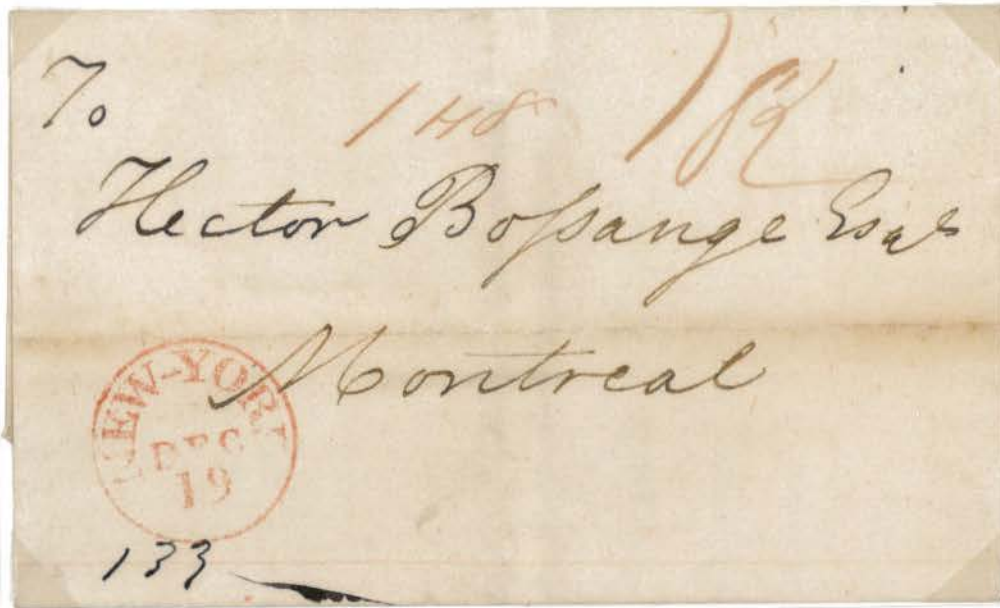 To
148
Hector Bossange Esqr
Montreal
NEW-YORK
DEC
19
133